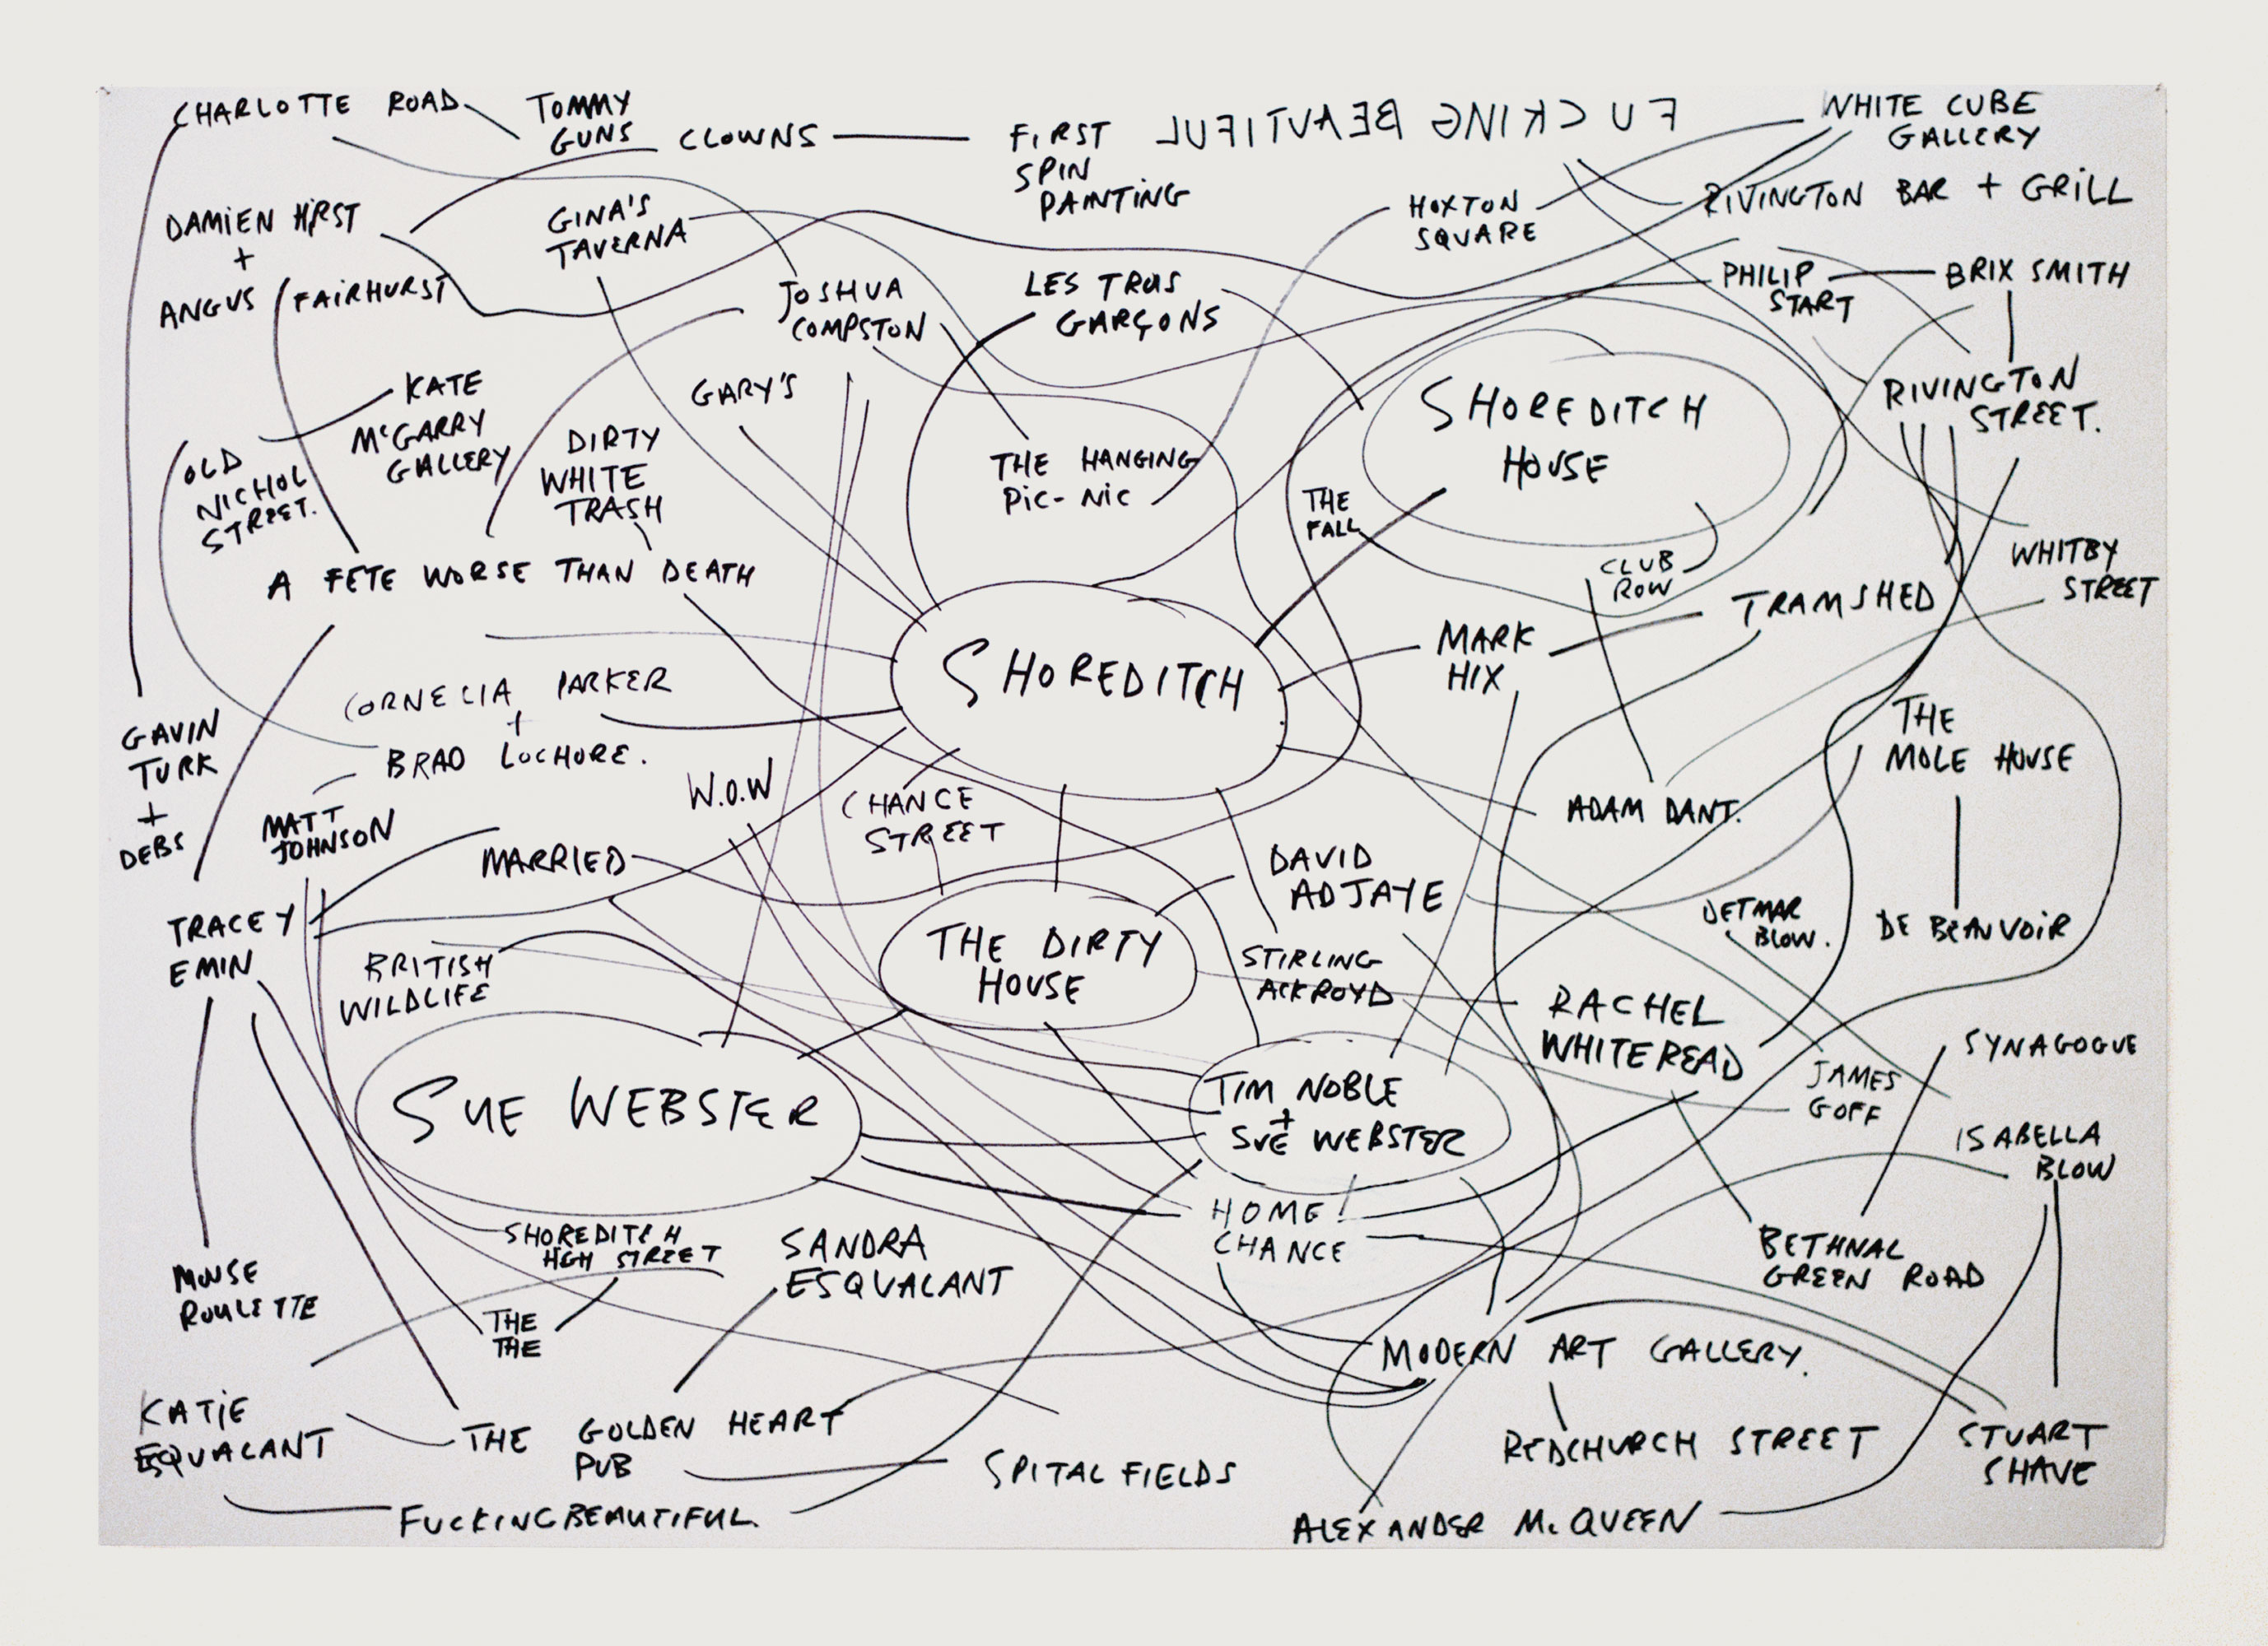 CHARLOTTE ROAD
TOMMY
GUNS
CLOWNS
FIRST
SPIN
PAINTING
FUCKING BEAUTIFUL
WHITE CUBE
GALLERY
DAMIEN HIRST
+
ANGUS FAIRHURST
GINA'S
TAVERNA
HOXTON
SQUARE
RIVINGTON BAR + GRILL
JOSHUA
COMPSTON
LES TROIS
GARÇONS
PHILIP
START
BRIX SMITH
KATE
McGARRY
GALLERY
GARY'S
SHOREDITCH
HOUSE
RIVINGTON
STREET.
OLD
NICHOL
STREET.
DIRTY
WHITE
TRASH
THE HANGING
PIC-NIC
THE
FALL
CLUB
ROW
WHITBY
STREET
A FETE WORSE THAN DEATH
SHOREDITCH
MARK
HIX
TRAMSHED
CORNELIA PARKER
+
BRAD LOCHORE.
GAVIN
TURK
+
DEBS
THE
MOLE HOUSE
W.O.W
CHANCE
STREET
ADAM DANT.
MATT
JOHNSON
MARRIED
DAVID
ADJAYE
DETMAR
BLOW.
DE BEAUVOIR
TRACEY
EMIN
BRITISH
WILDLIFE
THE DIRTY
HOUSE
STIRLING
ACKROYD
RACHEL
WHITEREAD
SYNAGOGUE
SUE WEBSTER
TIM NOBLE
+
SUE WEBSTER
JAMES
GOFF
ISABELLA
BLOW
HOME!
CHANCE
SHOREDITCH
HGH STREET
SANDRA
ESQUALANT
BETHNAL
GREEN ROAD
MOUSE
ROULETTE
THE
THE
MODERN ART GALLERY.
KATIE
ESQUALANT
THE GOLDEN HEART
PUB
SPITALFIELDS
REDCHURCH STREET
STUART
SHAVE
FUCKINGBEAUTIFUL.
ALEXANDER McQUEEN